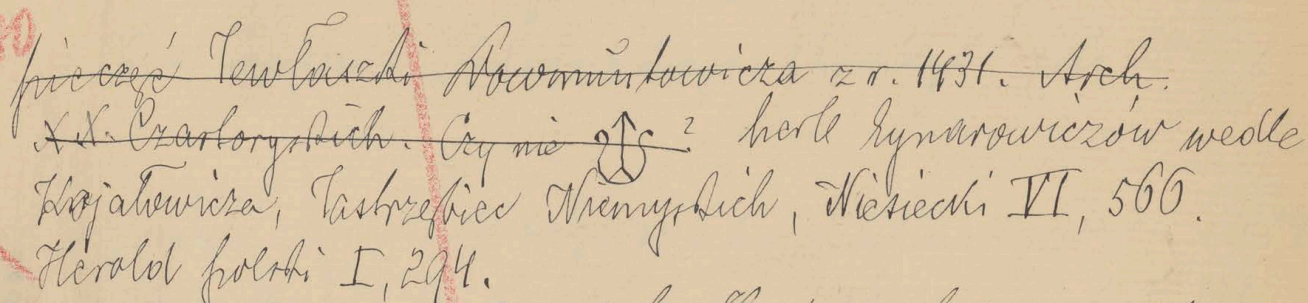 pieczęć Jewłaszki Dowmuntowicza z r. 1431. Arch.
XX. Czartoryskich. Czy nie ? herb Zynarowiczów wedle
Kojałowicza, Jastrzębiec Niemyskich, Niesiecki VI, 566.
Herold polski I, 294.